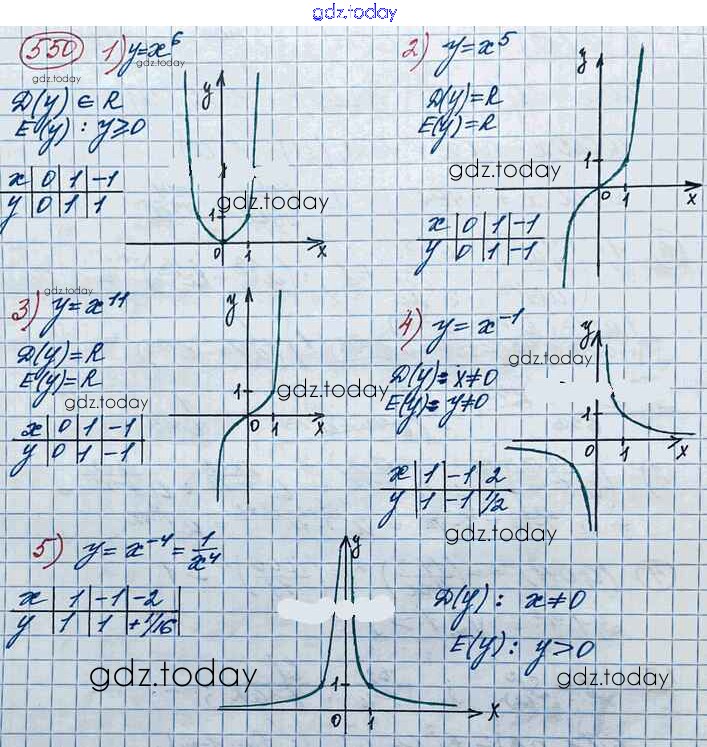 gdz.today
550 1) y=x⁶
gdz.today
gdz.today
D(y) ∈ R
E(y) : y≥0
x | 0 | 1 | -1
y | 0 | 1 | 1
y
1
0 1 x
gdz.today
2) y=x⁵
D(y)=R
E(y)=R
gdz.today
x | 0 | 1 | -1
y | 0 | 1 | -1
y
1
0 1 x
gdz.today
3) y=x¹¹
D(y)=R
E(y)=R
gdz.today
x | 0 | 1 | -1
y | 0 | 1 | -1
y
1
0 1 x
gdz.today
4) y=x⁻¹
gdz.today
D(y): x≠0
E(y): y≠0
x | 1 | -1 | 2
y | 1 | -1 | 1/2
y
1
0 1 x
gdz.today
5) y=x⁻⁴=1/x⁴
x | 1 | -1 | -2
y | 1 | 1 | +1/16
gdz.today
y
1
0 1 x
D(y): x≠0
E(y): y>0
gdz.today